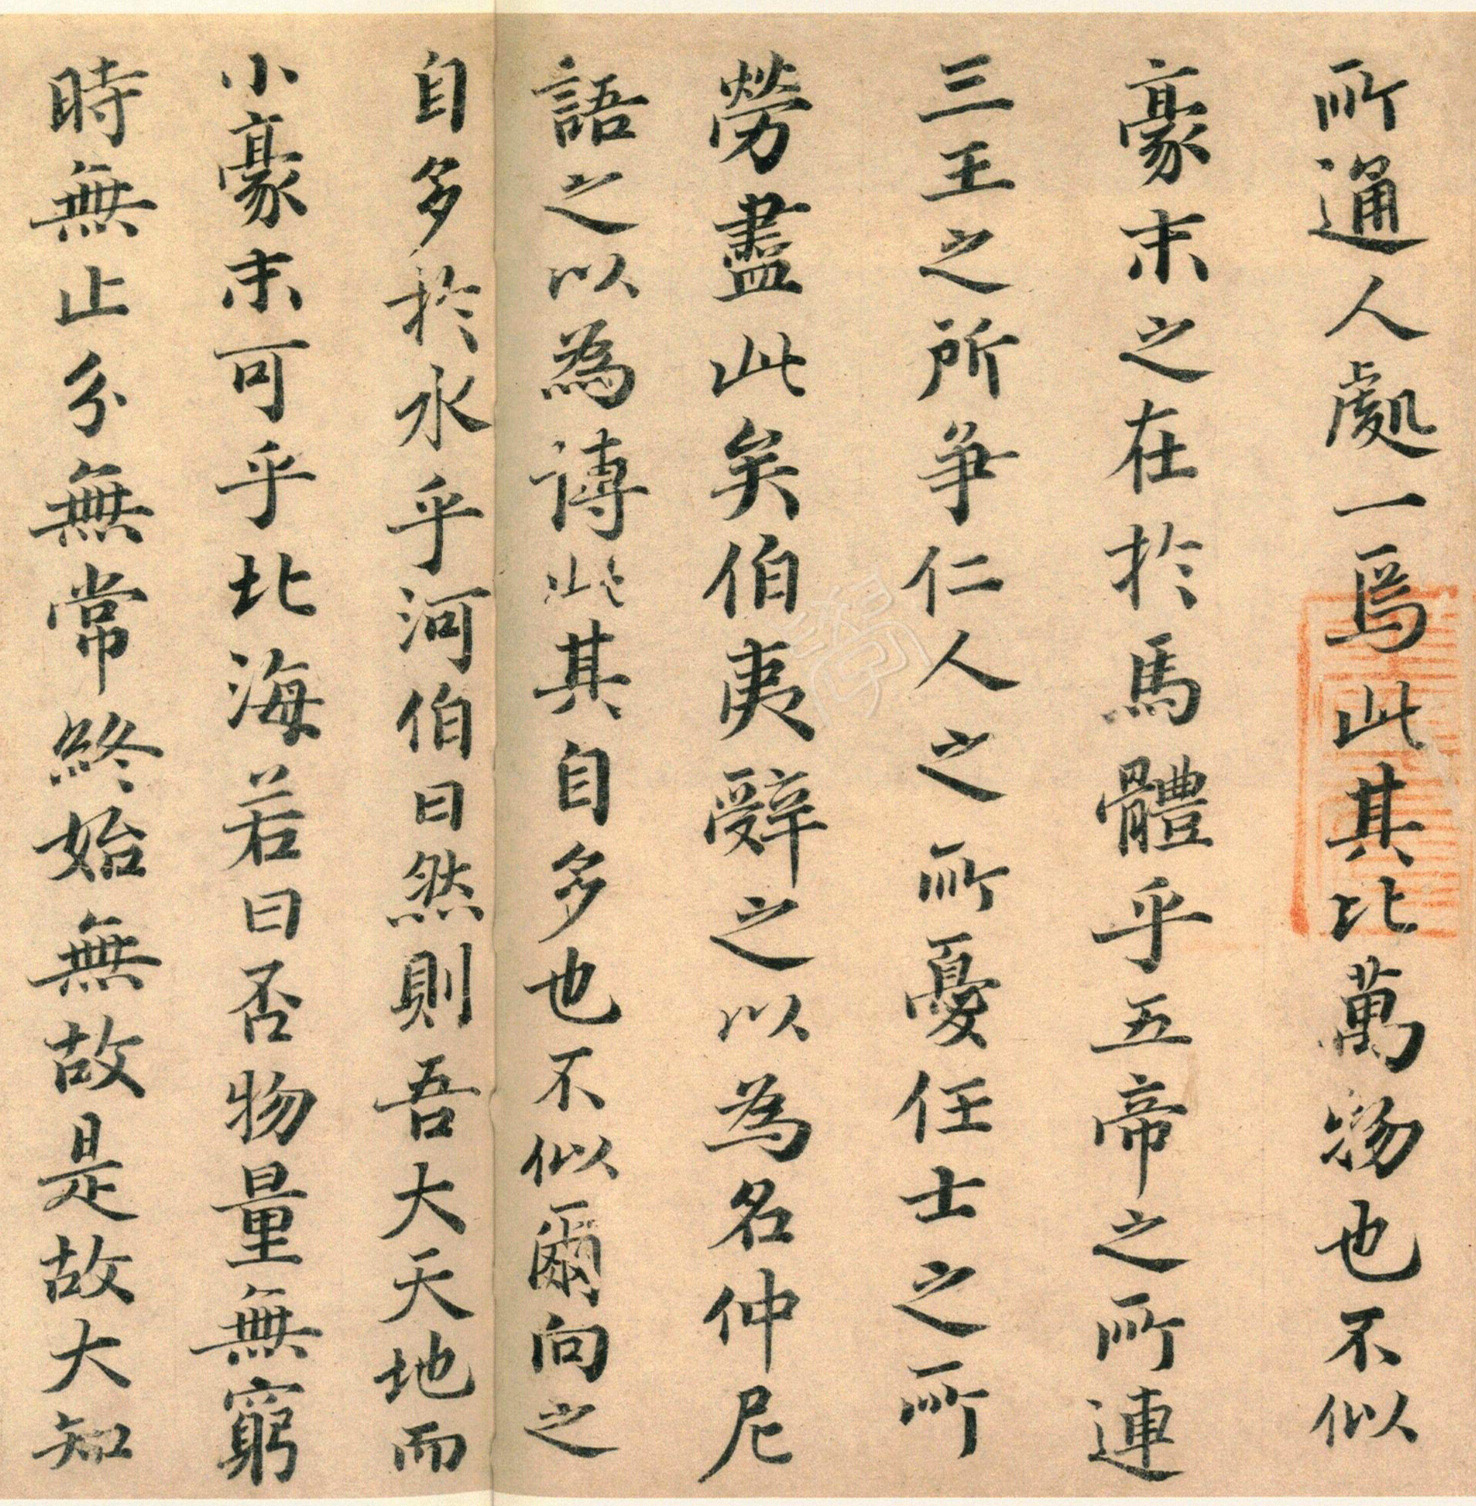 所通人處一焉此其比萬物也不似
豪末之在於馬體乎五帝之所連
三王之所爭仁人之所憂任士之所
勞盡此矣伯夷辭之以為名仲尼
語之以為博此其自多也不似爾向之
自多於水乎河伯曰然則吾大天地而
小豪末可乎北海若曰否物量無窮
時無止分無常終始無故是故大知